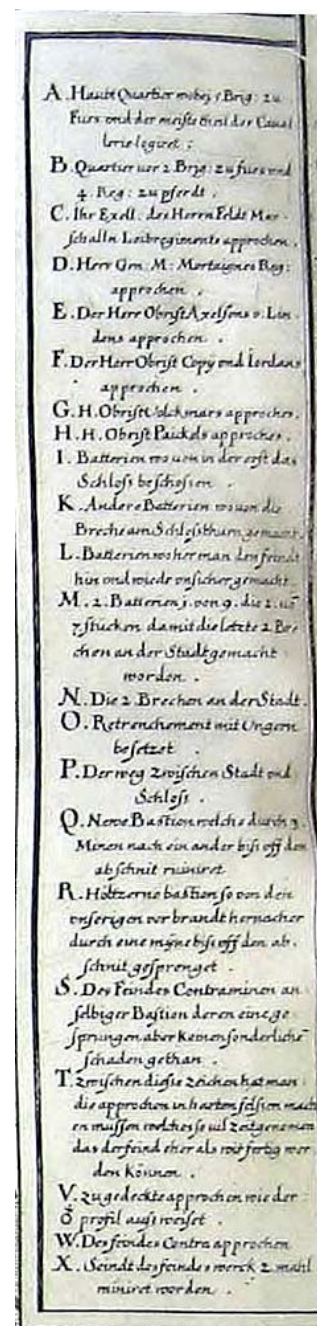 A. Haubt Quartier wobej 5 Brig: zu
Fues vnd der meiste theil der Caval
lerie logiret :
B. Quartier vor 2 Brig: zu fues vnd
4. Reg: zu pferdt .
C. Ihr Exell. des Herrn Feldt Mar-
schalln Leibregiments approchen .
D. Herr Gen. M: Mortaignes Reg:
approchen .
E. Der Herr Obrist Axelsons v. Lin
dens approchen .
F. Der Herr Obrist Copy vnd Iordans
approchen .
G. H. Obrist Volckmars approches.
H. H. Obrist Paickels approches .
I. Batterien wo von in der erst das
Schloss beschossen .
K. Andere Batterien wo von die
Breche am Schlossthurn gemacht.
L. Batterien woher man den feindt
hin vnd wiede vnsicher gemacht
M. 2. Batterien 1. von 9. die 2. vo
7. stucken damit die letzte 2 Bre
chen an der Stadt gemacht
worden .
N. Die 2 Brechen an der Stadt .
O. Retrenchement mit Ungern
besetzet .
P. Der weg zwischen Stadt vnd
Schloss .
Q. Newe Bastion welche durch 3
Minen nach ein ander biss off den
abschnit ruiniret
R. Holtzerne bastion so von den
vnserigen verbrandt hernacher
durch eine myne biss off den ab.
schnit gesprenget .
S. Des Feindes Contraminen an
selbiger Bastion deren eine ge
sprungen aber keinen sonderliche
schaden gethan .
T. Zwischen diesse zeichen hat man
die approchen in harten felssen mach
en mussen welches so vil zeit genomen
das der feind eher als wir fertig wer
den können .
V. zugedeckte approchen wie der
♁ profil aust weiset .
W. Des feindes Contra approchen
X. Seindt des feindes werck 2 mahl
miniret worden .